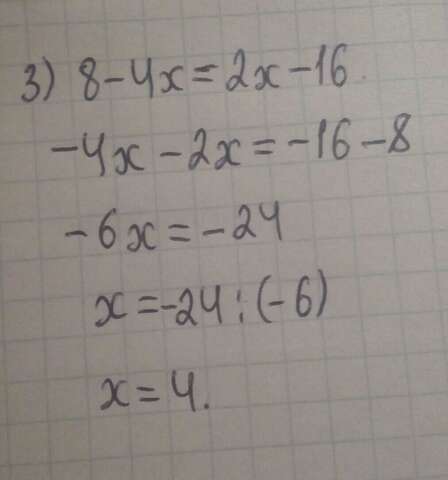 3) 8-4x=2x-16.
-4x-2x=-16-8
-6x=-24
x=-24:(-6)
x=4.